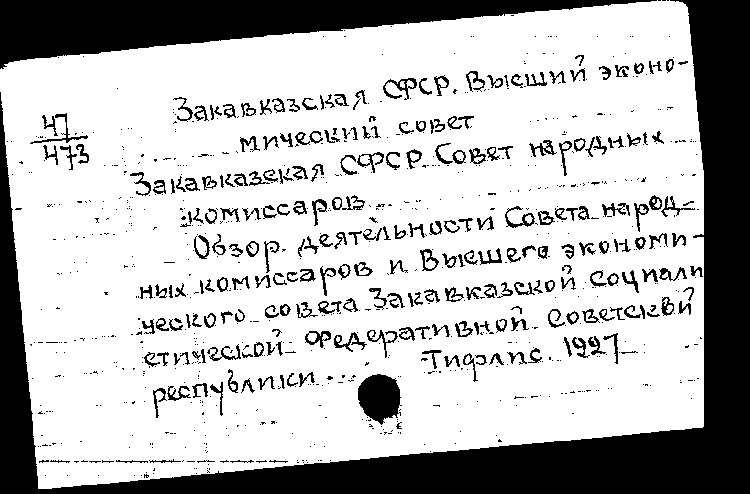 Закавказская СФСР. Высший эконо-
47
473
мический совет
Закавказская СФСР. Совет народных
комиссаров
Обзор деятельности Совета народ-
ных комиссаров и Высшего экономи-
ческого совета Закавказской социали
стической Федеративной Советской
республики ... Тифлис. 1927